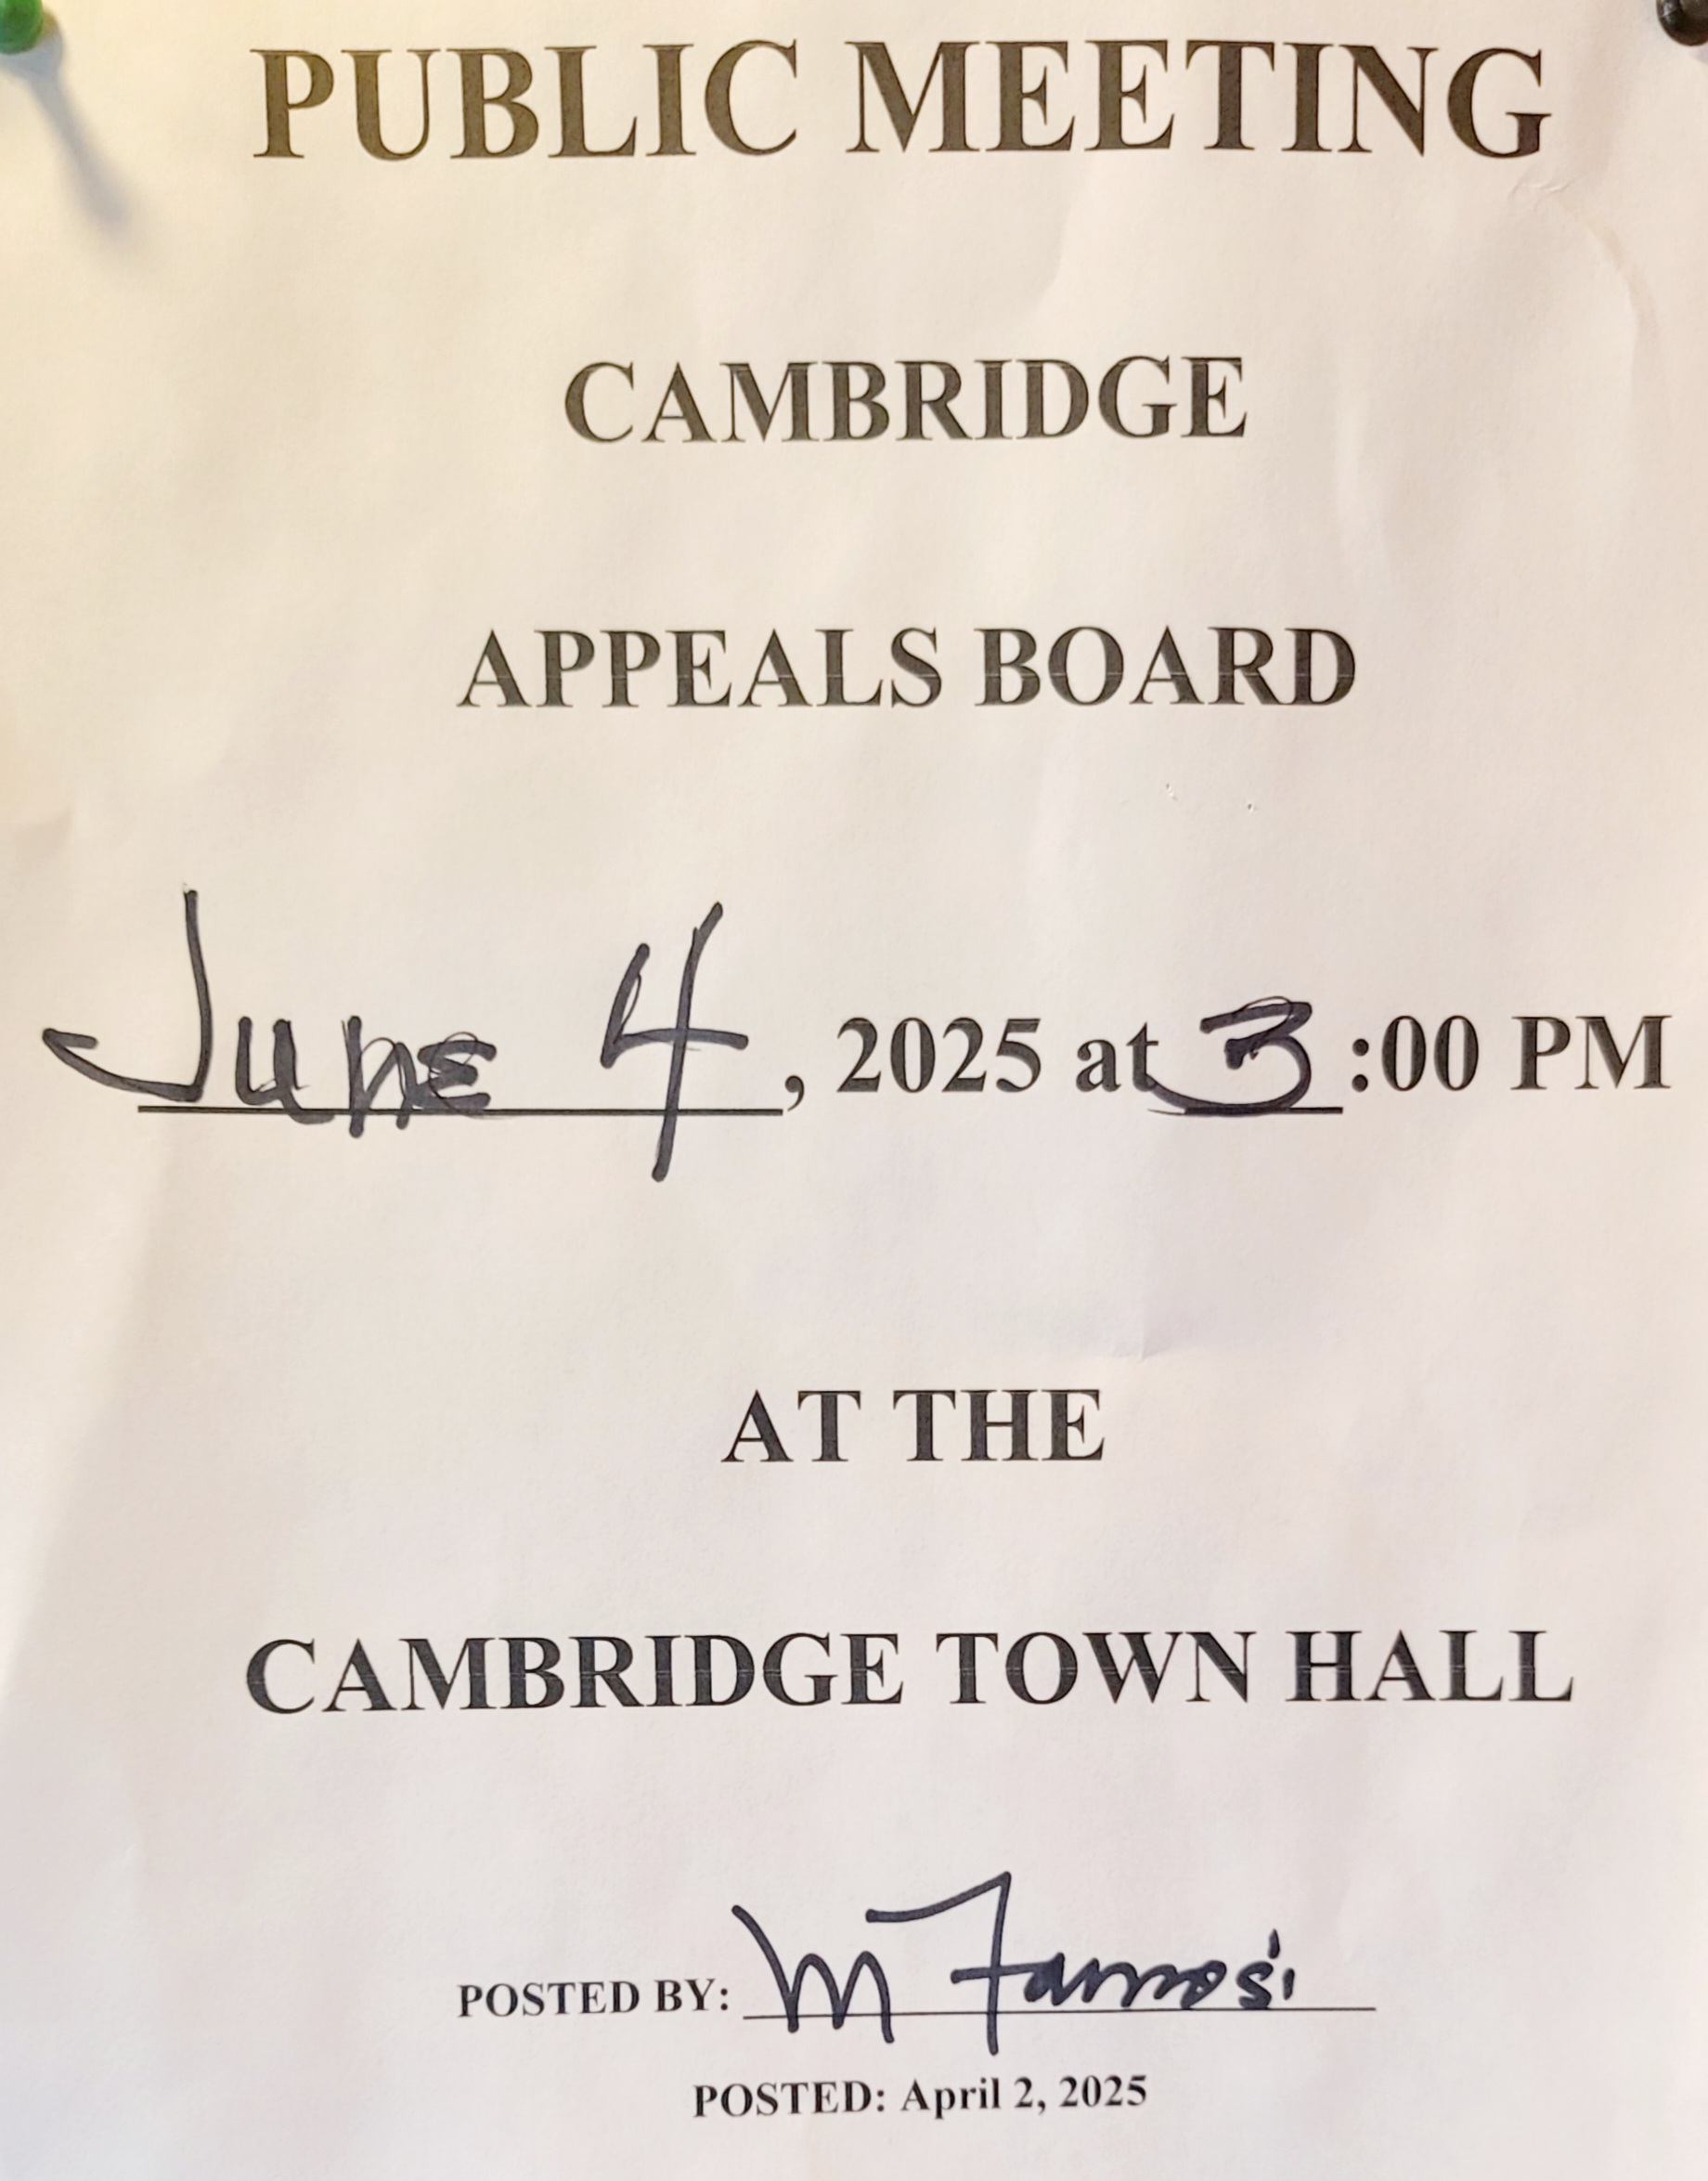 PUBLIC MEETING
CAMBRIDGE
APPEALS BOARD
June 4, 2025 at 3:00 PM
AT THE
CAMBRIDGE TOWN HALL
POSTED BY: M
POSTED: April 2, 2025